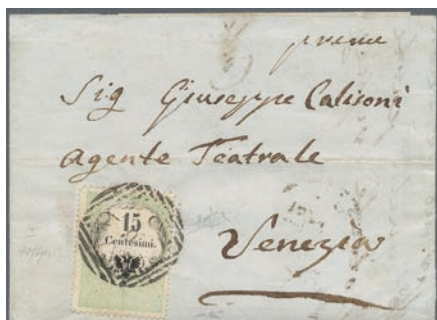 preme
Sig Giuseppe Calisoni
Agente Teatrale
15
Centesimi.
Venezia